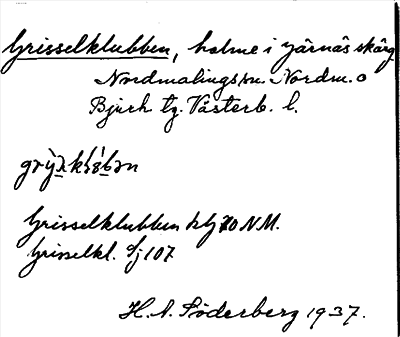 Grisselklubben, holme i Järnäs skärg.
Nordmalings sn. Nordm. o
Bjurh. tg. Västerb. l.
Grisselklubben kbl 70 N.M.
Grisselkl. sj 107
H. A. Söderberg 1937.